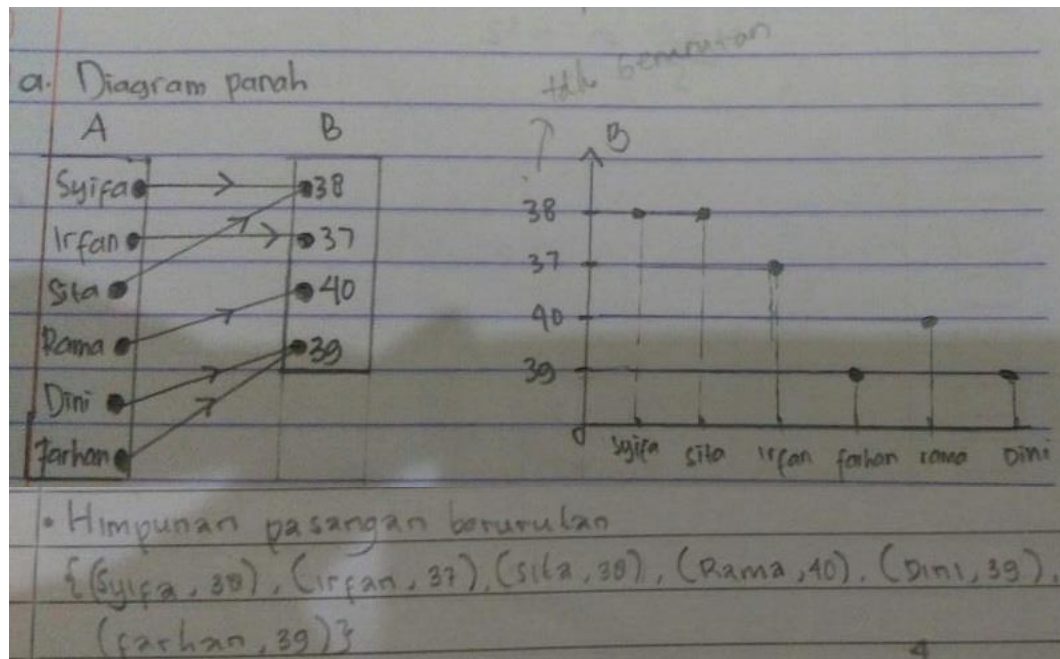 a. Diagram panah
tdk berurutan
A
B
Syifa
38
Irfan
37
Sita
40
Rama
39
Dini
Farhan
B
38
37
40
39
0
Syifa Sita Irfan farhan rama Dini
• Himpunan pasangan berurutan
{(Syifa, 38), (irfan, 37), (Sita, 38), (Rama, 40), (Dini, 39),
(farhan, 39)}
4